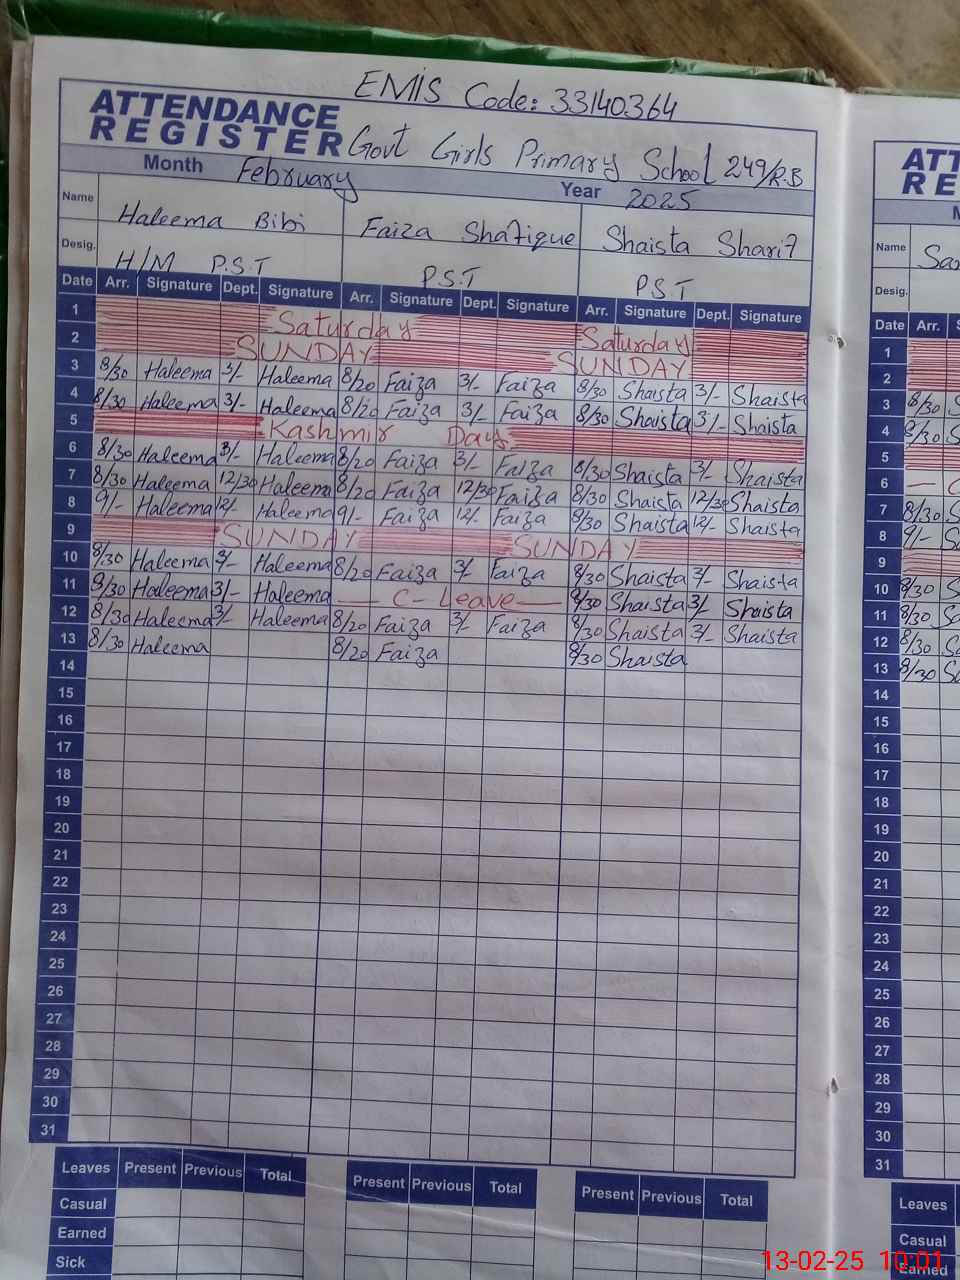 EMIS Code: 33140364
ATTENDANCE
REGISTER
Govt Girls Primary School 249/R.B
Month February Year 2025
Name Haleema Bibi Faiza Shafique Shaista Sharif
Desig. H/M P.S.T P.S.T P.S.T
Date Arr. Signature Dept. Signature Arr. Signature Dept. Signature Arr. Signature Dept. Signature
1 Saturday Saturday
2 SUNDAY SUNDAY
3 8/30 Haleema 3/- Haleema 8/20 Faiza 3/- Faiza 8/30 Shaista 3/- Shaista
4 8/30 Haleema 3/- Haleema 8/20 Faiza 3/- Faiza 8/30 Shaista 3/- Shaista
5 Kashmir Day
6 8/30 Haleema 3/- Haleema 8/20 Faiza 3/- Faiza 8/30 Shaista 3/- Shaista
7 8/30 Haleema 12/30 Haleema 8/20 Faiza 12/30 Faiza 8/30 Shaista 12/30 Shaista
8 9/- Haleema 12/- Haleema 9/- Faiza 12/- Faiza 8/30 Shaista 12/- Shaista
9 SUNDAY SUNDAY
10 8/30 Haleema 3/- Haleema 8/20 Faiza 3/- Faiza 8/30 Shaista 3/- Shaista
11 8/30 Haleema 3/- Haleema — C-Leave — 8/30 Shaista 3/- Shaista
12 8/30 Haleema 3/- Haleema 8/20 Faiza 3/- Faiza 8/30 Shaista 3/- Shaista
13 8/30 Haleema 8/20 Faiza 8/30 Shaista
14
15
16
17
18
19
20
21
22
23
24
25
26
27
28
29
30
31
Leaves Present Previous Total Present Previous Total Present Previous Total
Casual
Earned
Sick
Name
Desig.
Date Arr.
1
2
3 8/30
4 8/30
5
6
7 8/30
8 9/-
9
10 8/30
11 8/30
12 8/30
13 8/30
14
15
16
17
18
19
20
21
22
23
24
25
26
27
28
29
30
31
Leaves
Casual
Earned
13-02-25 10:01